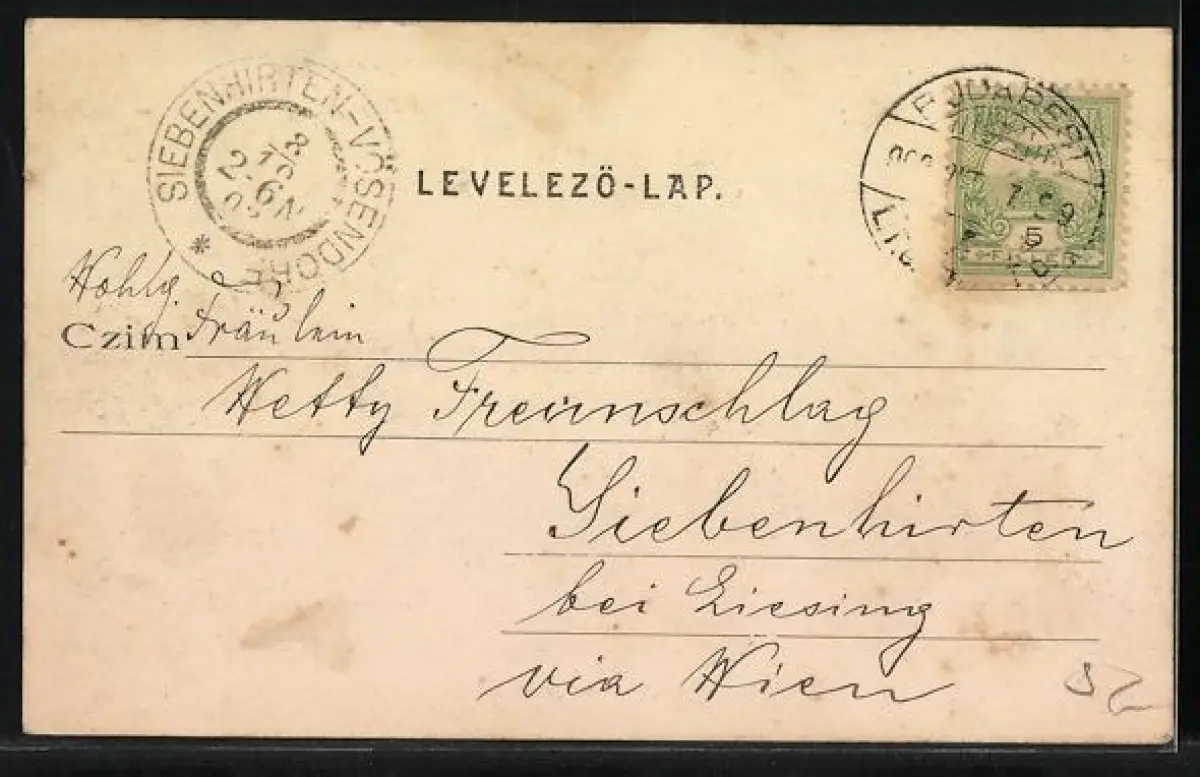 SIEBENHIRTEN-VÖSENDORF
*
LEVELEZŐ-LAP.
BUDAPEST
5
FILLÉR
Wohlg.
Czim Fräulein
Hetty Freunschlag
Siebenhirten
bei Liesing
via Wien